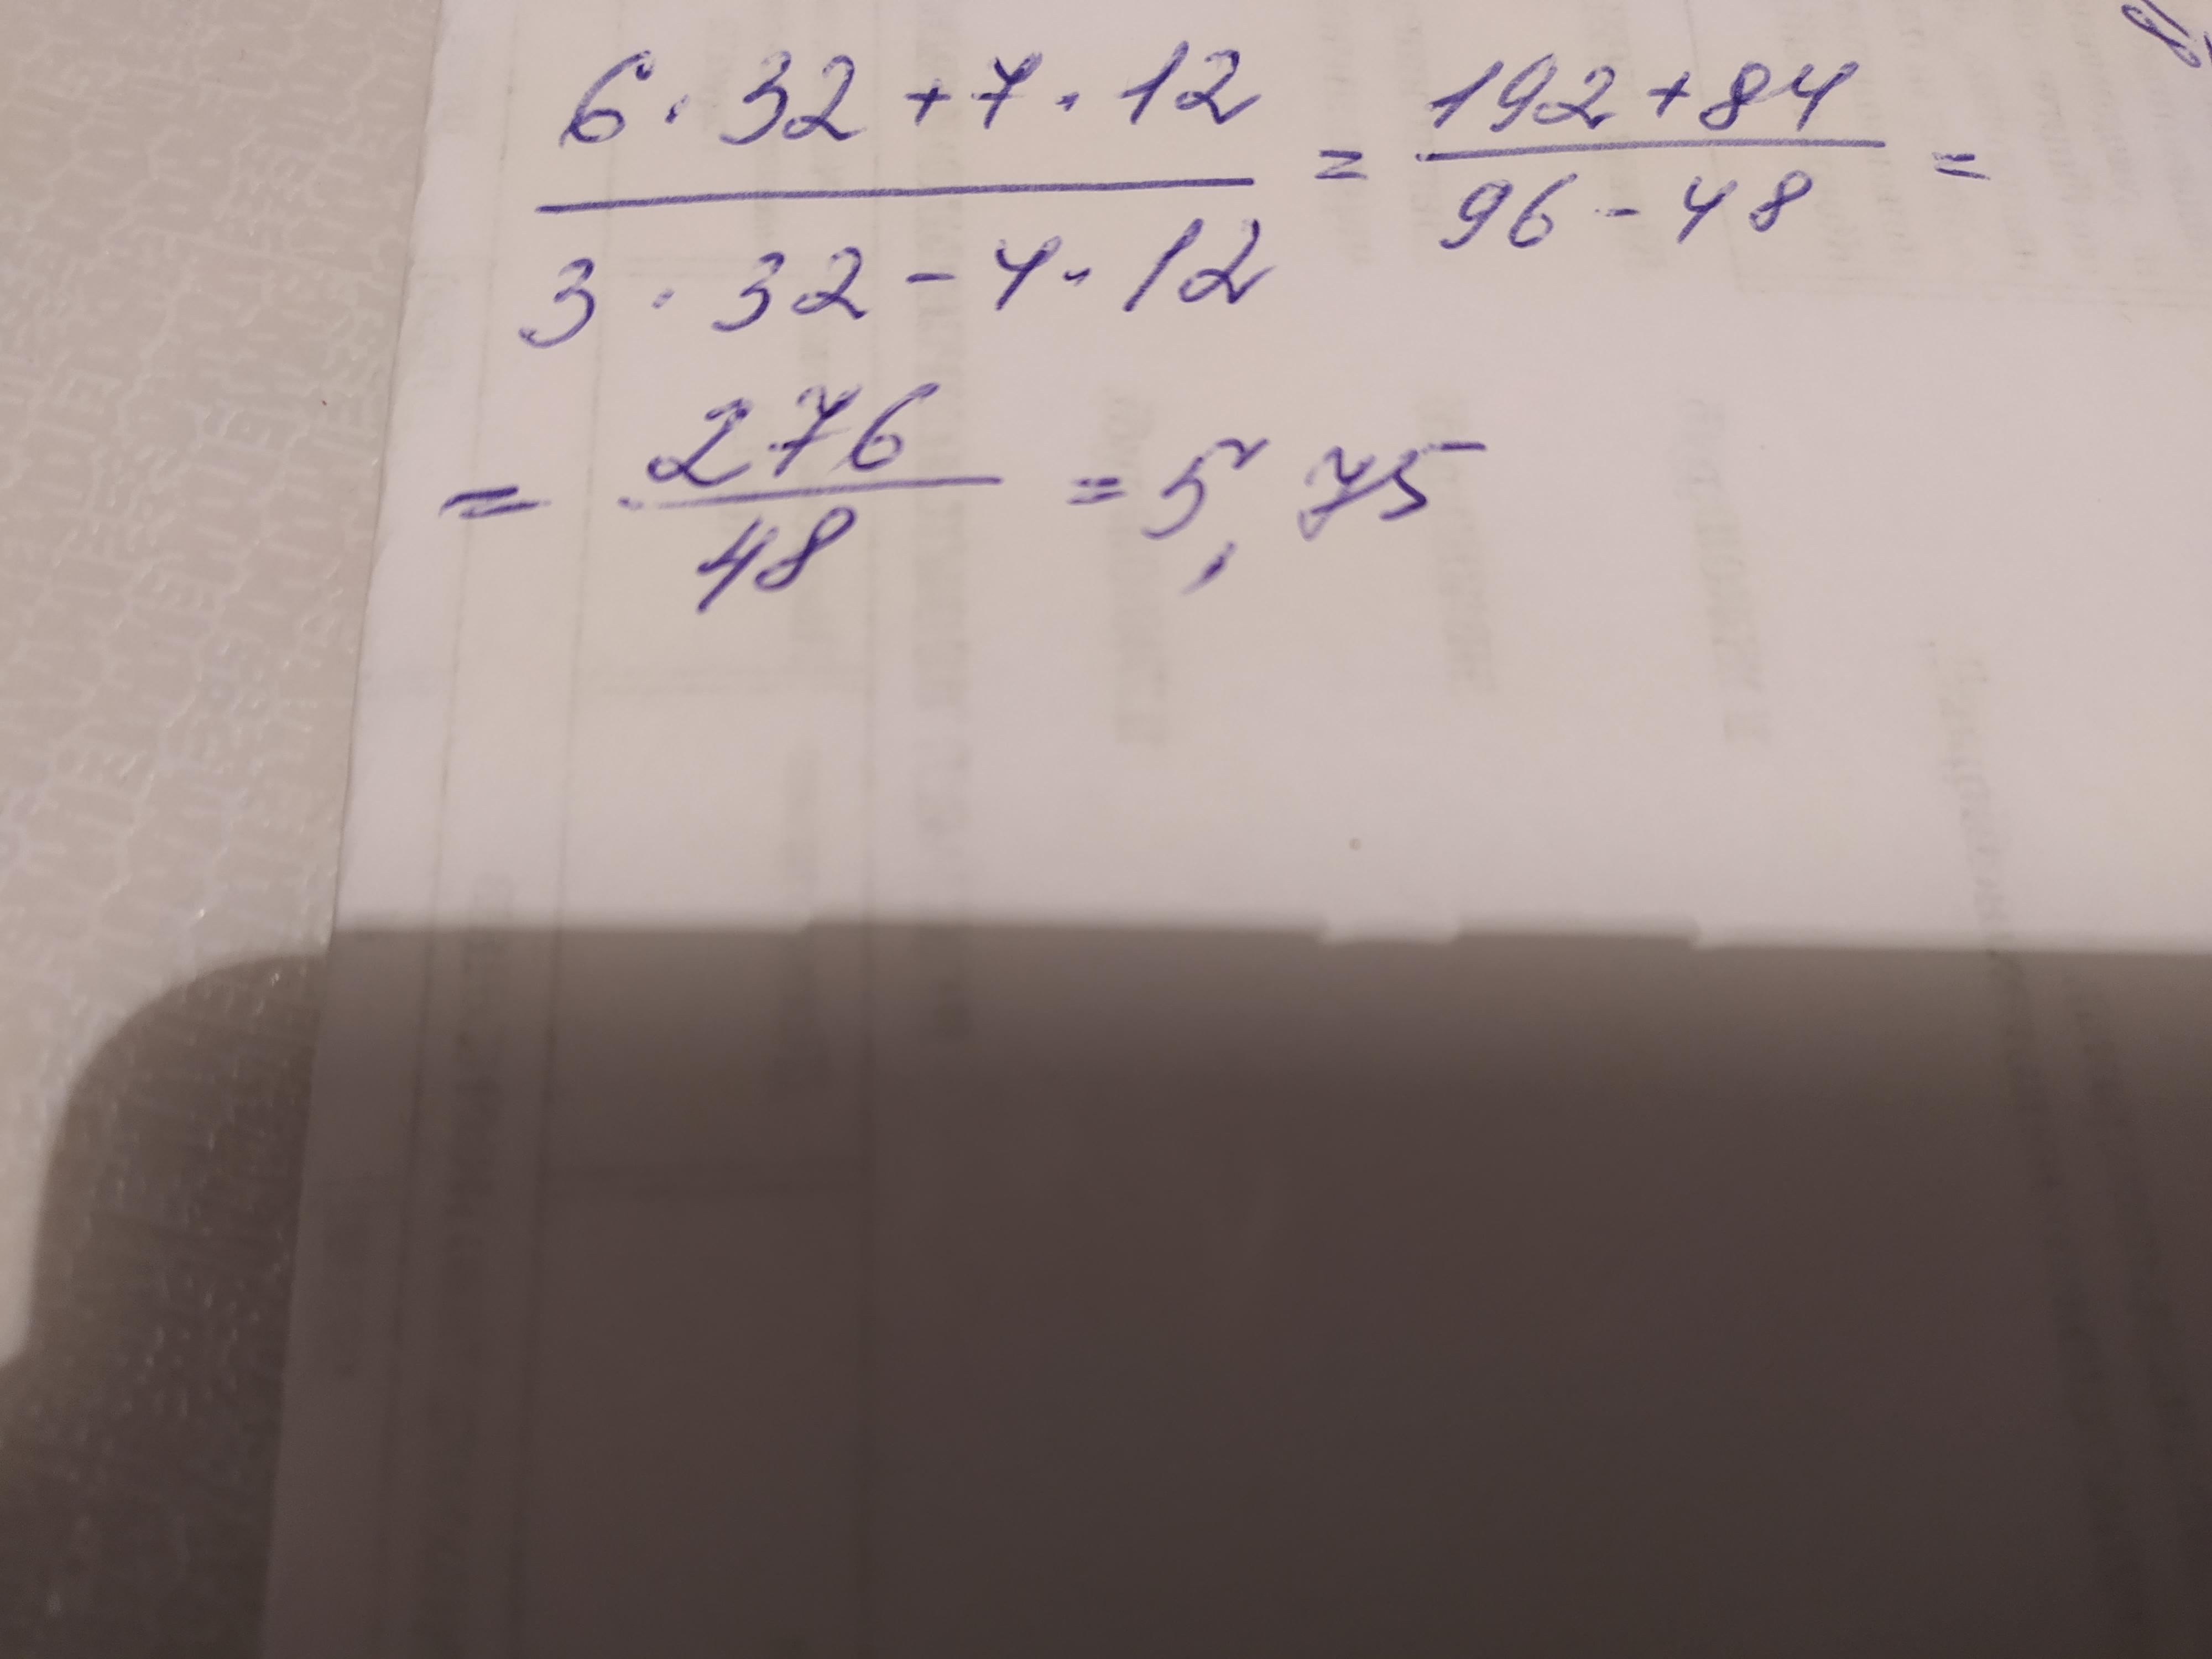 6 · 32 + 7 · 12
3 · 32 - 4 · 12
=
192 + 84
96 - 48
=
= 276
48
= 5,75